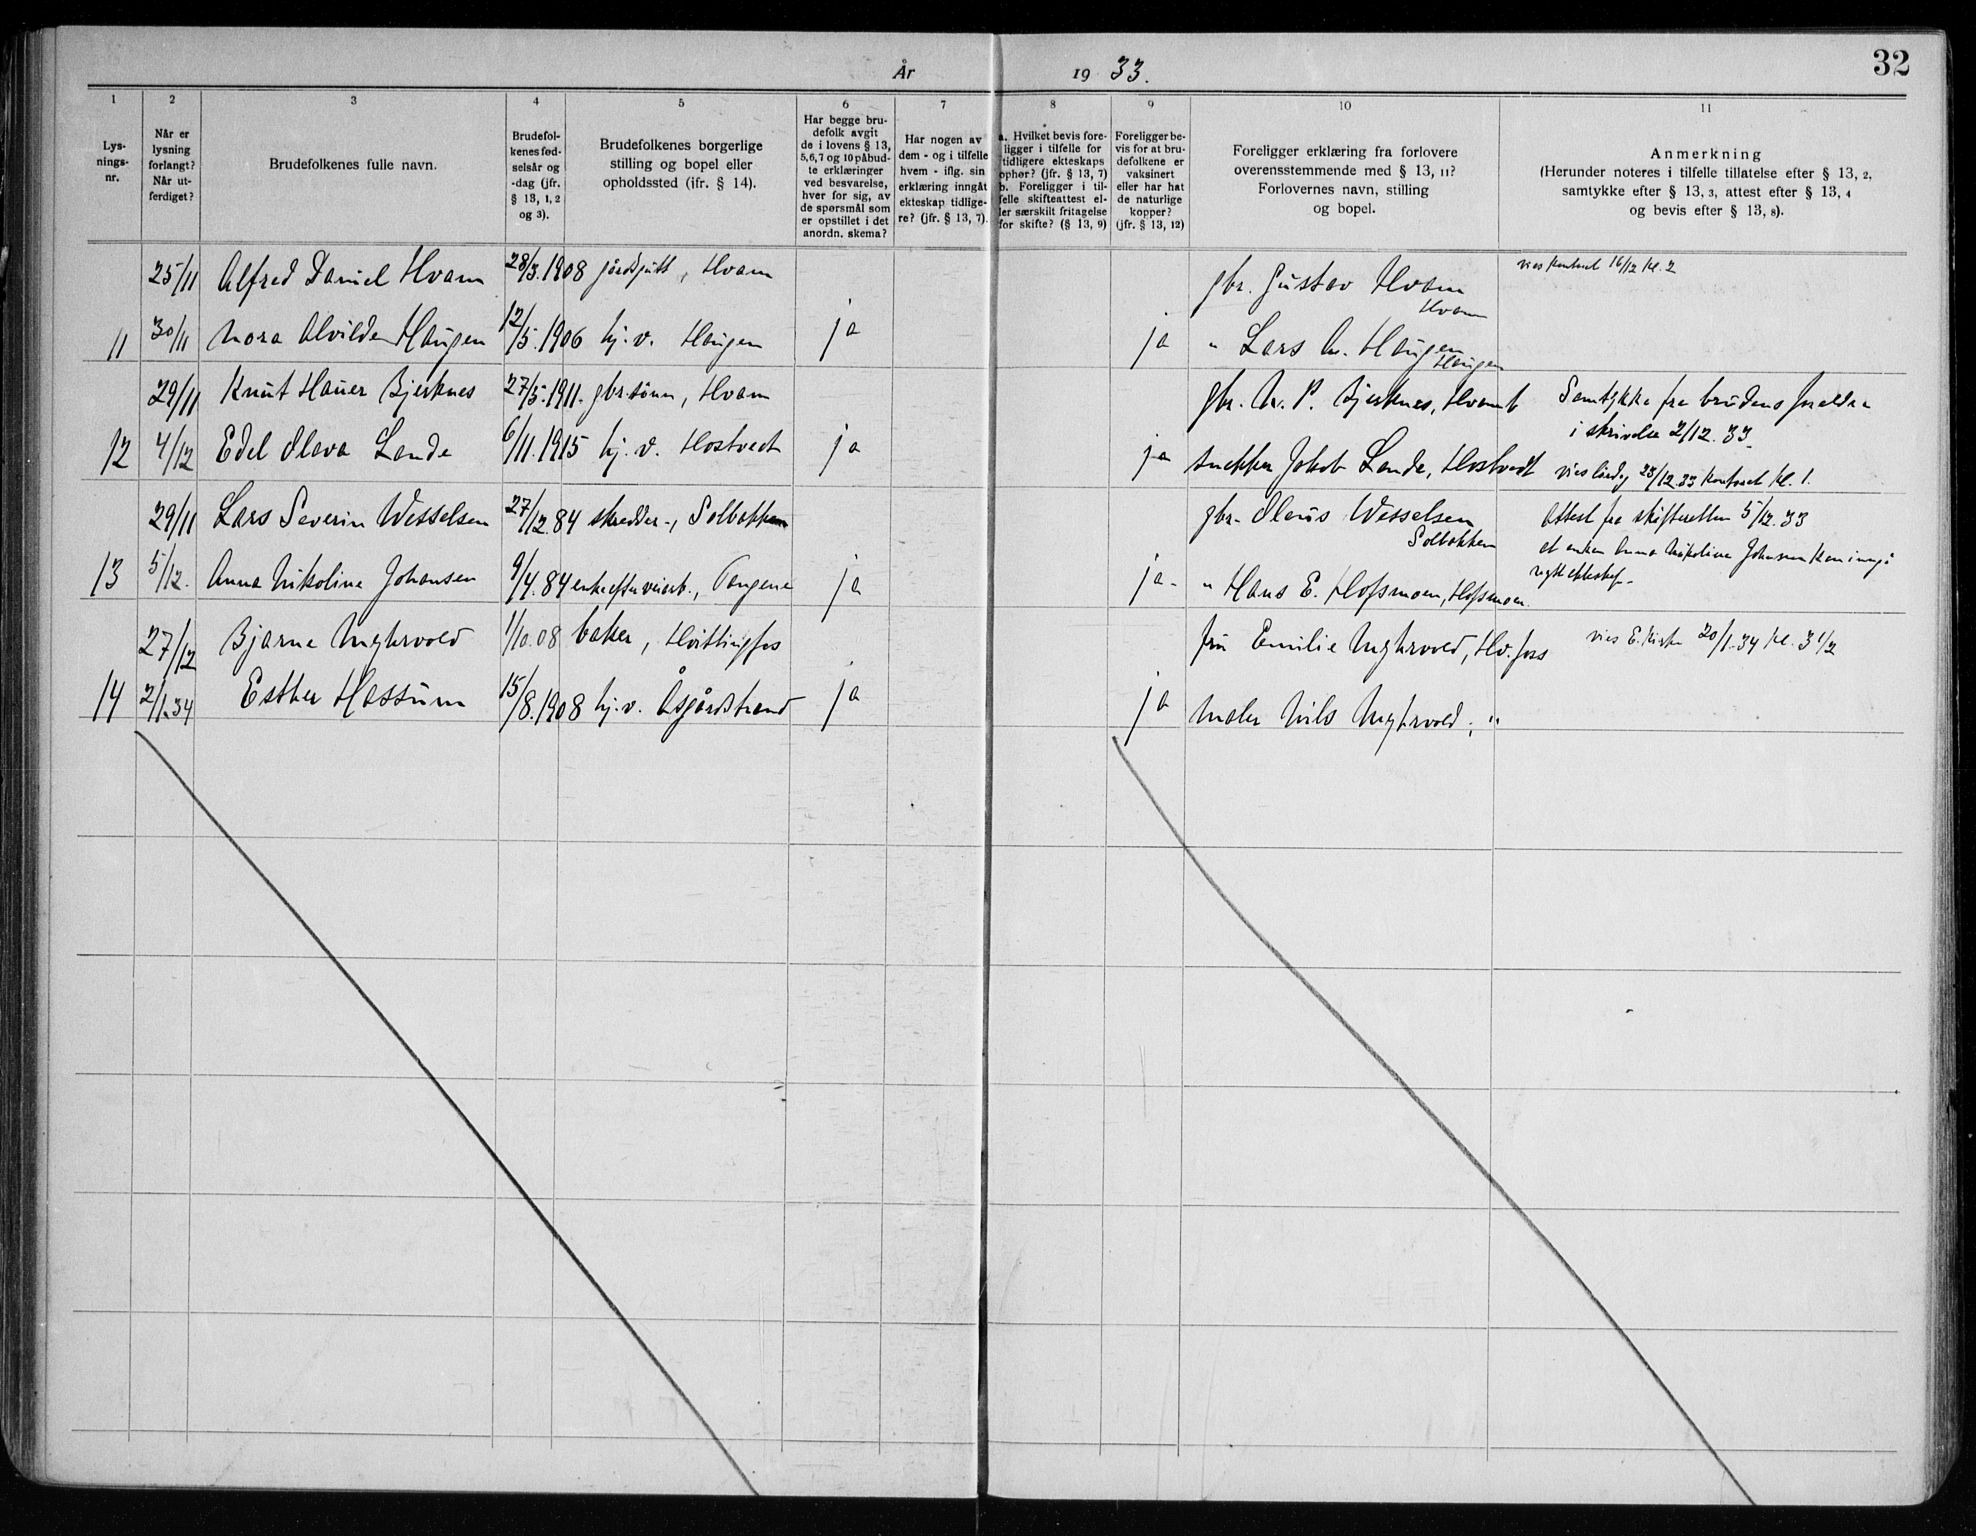 År 1933.
32
1 2 3 4 5 6 7 8 9 10 11
Lys-
nings-
nr.
Når er
lysning
forlangt?
Når ut-
ferdiget?
Brudefolkenes fulle navn.
Brudefol-
kenes fød-
selsår og
-dag (jfr.
§ 13, 1, 2
og 3).
Brudefolkenes borgerlige
stilling og bopel eller
opholdssted (ifr. § 14).
Har begge bru-
defolk avgit
de i lovens § 13,
5,6,7 og 10 påbud-
te erklæringer
ved besvarelse,
hver for sig, av
de spørsmål som
er opstillet i det
anordn. skema?
Har nogen av
dem - og i tilfelle
hvem - iflg. sin
erklæring inngåt
ekteskap tidlige-
re? (jfr. § 13, 7).
a. Hvilket bevis fore-
ligger i tilfelle for
tidligere ekteskaps
ophør? (jfr. § 13, 7)
b. Foreligger i til-
felle skifteattest el-
ler særskilt fritagelse
for skifte? (§ 13, 9)
Foreligger be-
vis for at bru-
defolkene er
vaksinert
eller har hat
de naturlige
kopper?
(jfr. § 13, 12)
Foreligger erklæring fra forlovere
overensstemmende med § 13, 11?
Forlovernes navn, stilling
og bopel.
Anmerkning
(Herunder noteres i tilfelle tillatelse efter § 13, 2,
samtykke efter § 13, 3, attest efter § 13, 4
og bevis efter § 13, 8).
25/11 Alfred Daniel Hvam 28/3.1908 Hvam gbr. Gustav Hvam vies kontoret 16/12 kl. 2
Hvam
11 30/11 Nora Alvilde Haugen 12/5.1906 hj.v. Haugen ja ja " Lars Haugen
Haugen
29/11 Knut Hauer Bjerknes 27/5.1911. gbr.sønn, Hvam gbr. P. Bjerknes, Samtykke fra brudens foreldre
i skrivelse 2/12.33.
12 4/12 Edel Olava Lande 6/11.1915 hj.v. Hostvedt ja ja snekker Jakob Lande, Hostvedt vies 23/12.33 kontoret kl. 1.
29/11 Lars Severin Wesselsen 27/12.84 skredder, Solbakken gbr. Olaus Wesselsen Attest fra skifteretten 5/12.33
Solbakken
at enken Anna Nikoline Johansen kan inngå
13 5/12. Anna Nikoline Johansen 9/4.84 enke efter veiarb., Tangene ja ja " Hans E. Hofsmoen, Hofsmoen.
nytt ekteskap
27/12 Bjarne Myhrvold 1/10.08 baker, Hvittingfos fru Emilie Myhrvold, Hv.foss vies E. kirke 20/1.34 kl. 3 1/2
14 2/1.34 Esther Hassum 15/8.1908 hj.v. Åsgårdstrand ja ja maler Nils Myhrvold, "